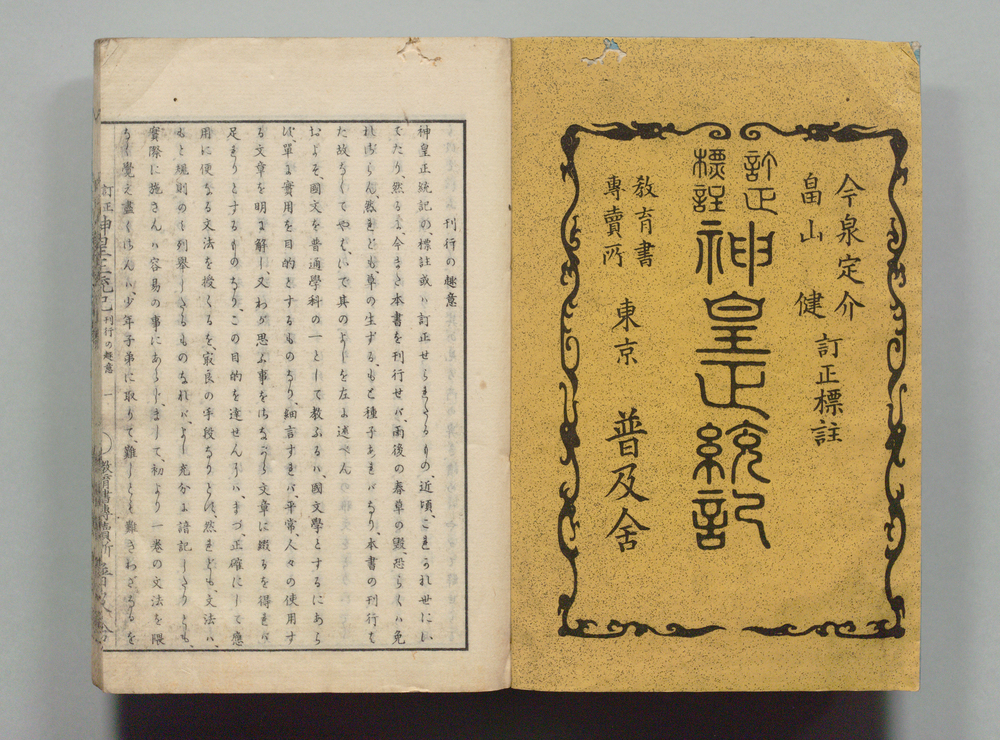 今泉定介
畠山健
訂正標註
訂正
標註
神皇正統記
教育書
專賣所
東京
普及舍
刊行の趣意
神皇正統記の、標註或ハ訂正せられたるもの、近頃、これかれ世にい
でたり、然るに、今また本書を刊行せバ、雨後の春草の毀、恐らくハ免
れざらん、然れども、草の生ずるもと種子あれバなり、本書の刊行も
た故なくてやハ、いで其のよしを左に述べん
およそ、國文を普通學科の一として教ふるハ、國文學とするにあら
ず、單に實用を目的とするものなり、細言すれバ、平常、人々の使用す
る文章を明に解し、又わが思ふ事をさながら文章に綴るを得れバ
足れりとするものなり、この目的を達せんにハ、まづ、正確にして應
用に便なる文法を授くるを、最良の手段なりとす、然れども、文法ハ、
もと規則のミを列擧したるものなれバ、よし充分に諳記したりとも、
實際に施さんハ容易の事にあらず、まして、初より一卷の文法を隈
なく覺え盡くさんハ、少年子弟に取りて、難しとも難きわざなるを
訂正神皇正統記 刊行の趣意 一 教育書專賣所 普及舍